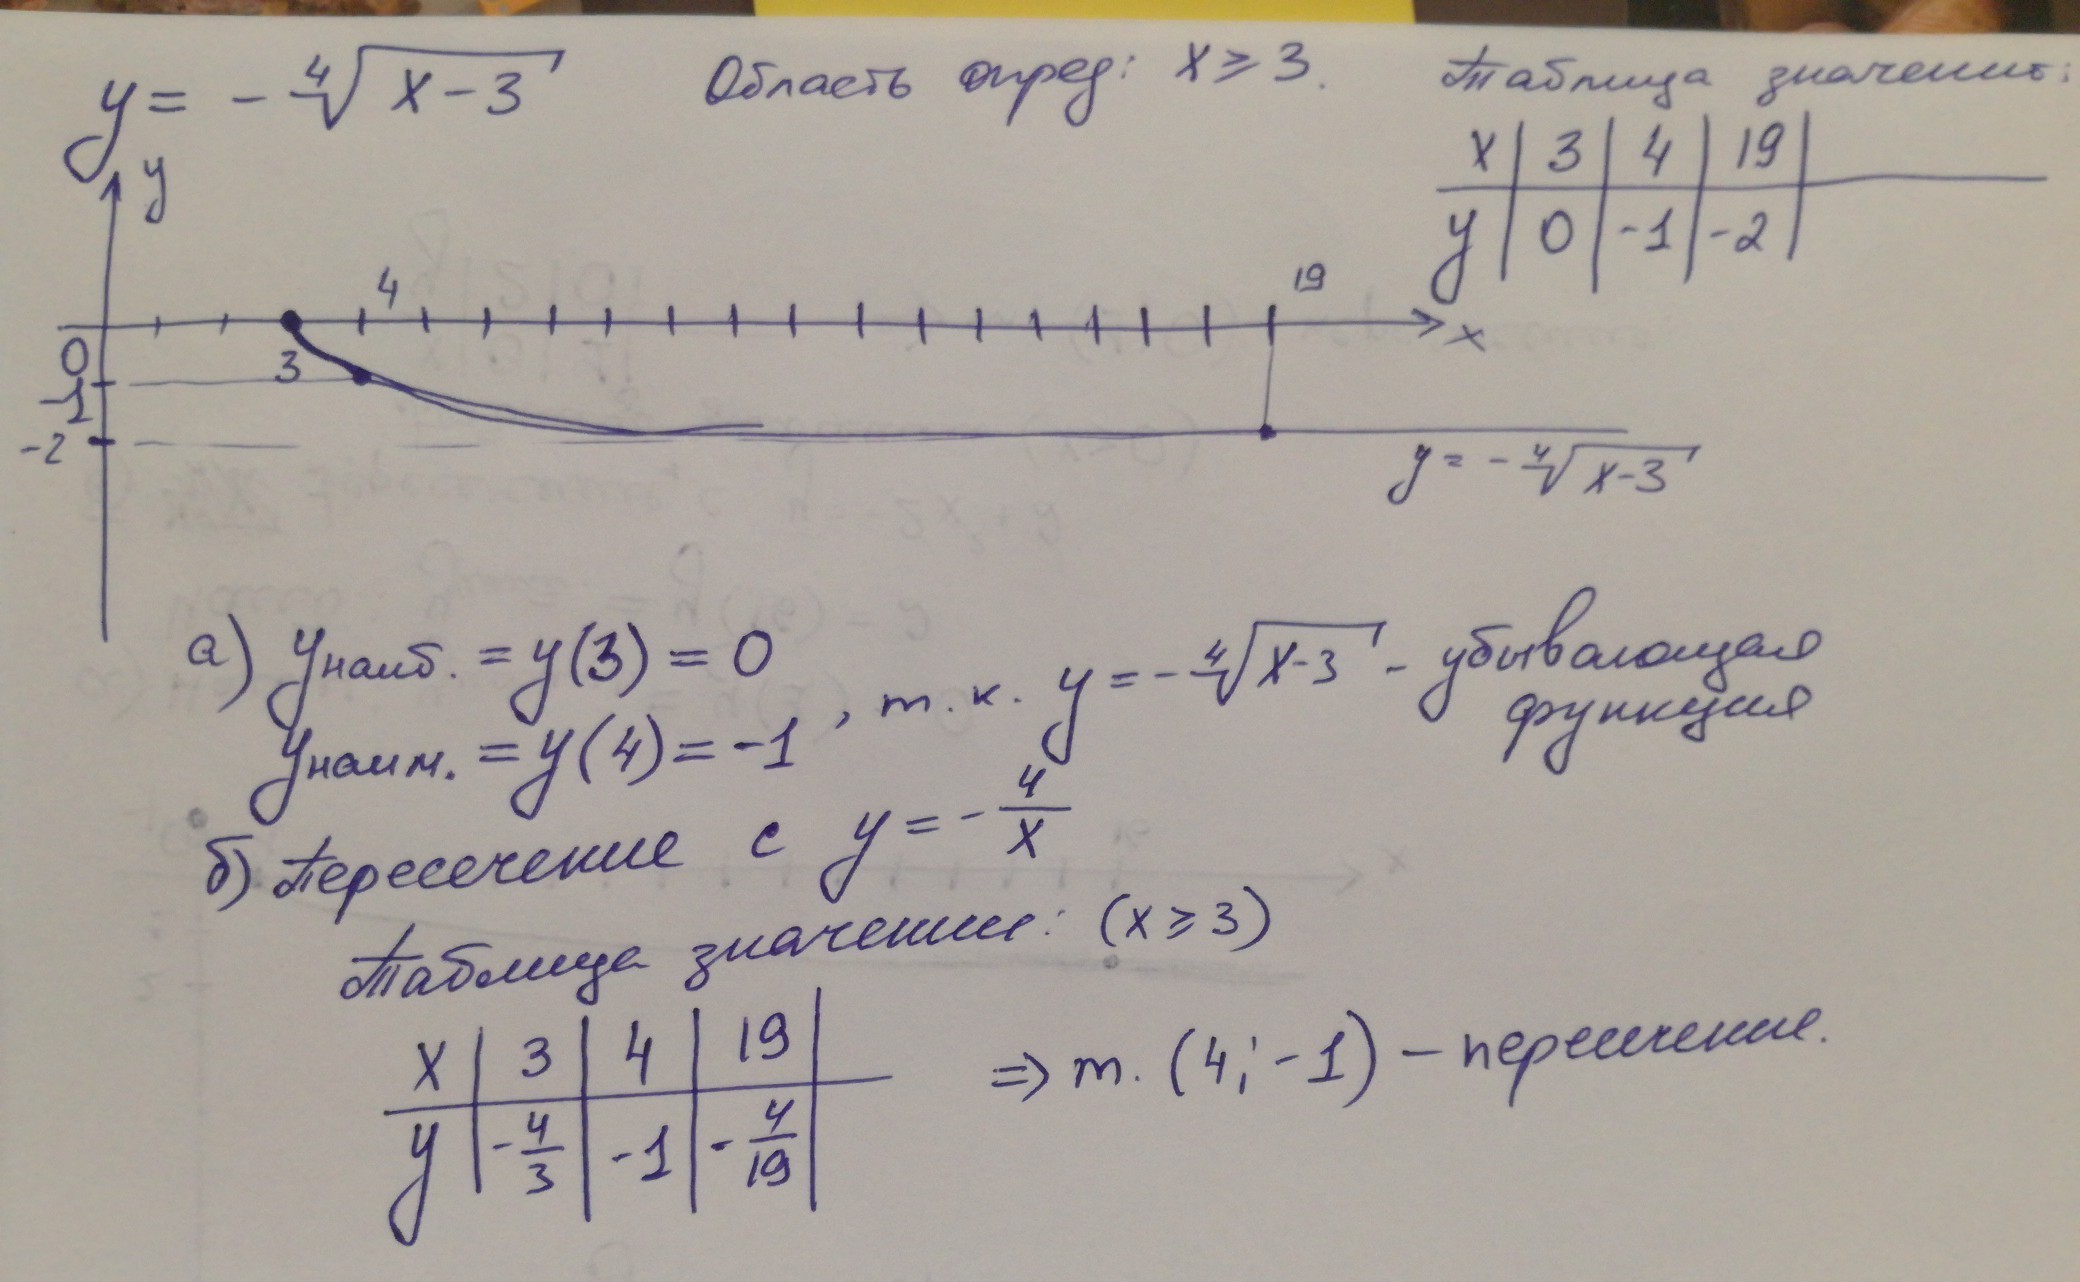 y = -∜(x-3) Область опред: x ≥ 3. Таблица значений:
x | 3 | 4 | 19 |
y | 0 | -1 | -2 |
y
4 19
x
0 3
-1
-2
y = -∜(x-3)
а) yнаиб. = y(3) = 0
yнаим. = y(4) = -1 , т.к. y = -∜(x-3) - убывающая функция
б) Пересечение с y = -4/x
Таблица значений: (x ≥ 3)
x | 3 | 4 | 19 |
y | -4/3 | -1 | -4/19 |
=> т. (4; -1) – пересечение.